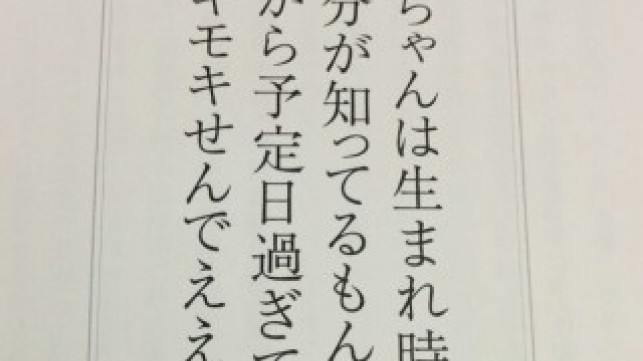 ちゃんは生まれ時
分が知ってるもん
から予定日過ぎて
ヤモキせんでええ